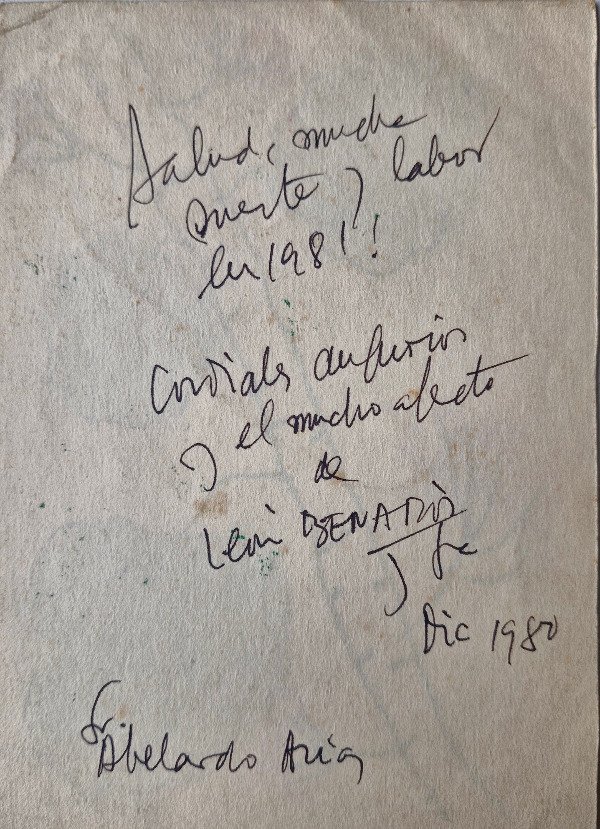 Salud, mucha
suerte y labor
en 1981!
Cordiales augurios
y el mucho afecto
de
León BENARÓS
y fa
Dic 1980
Sr.
Abelardo Arias